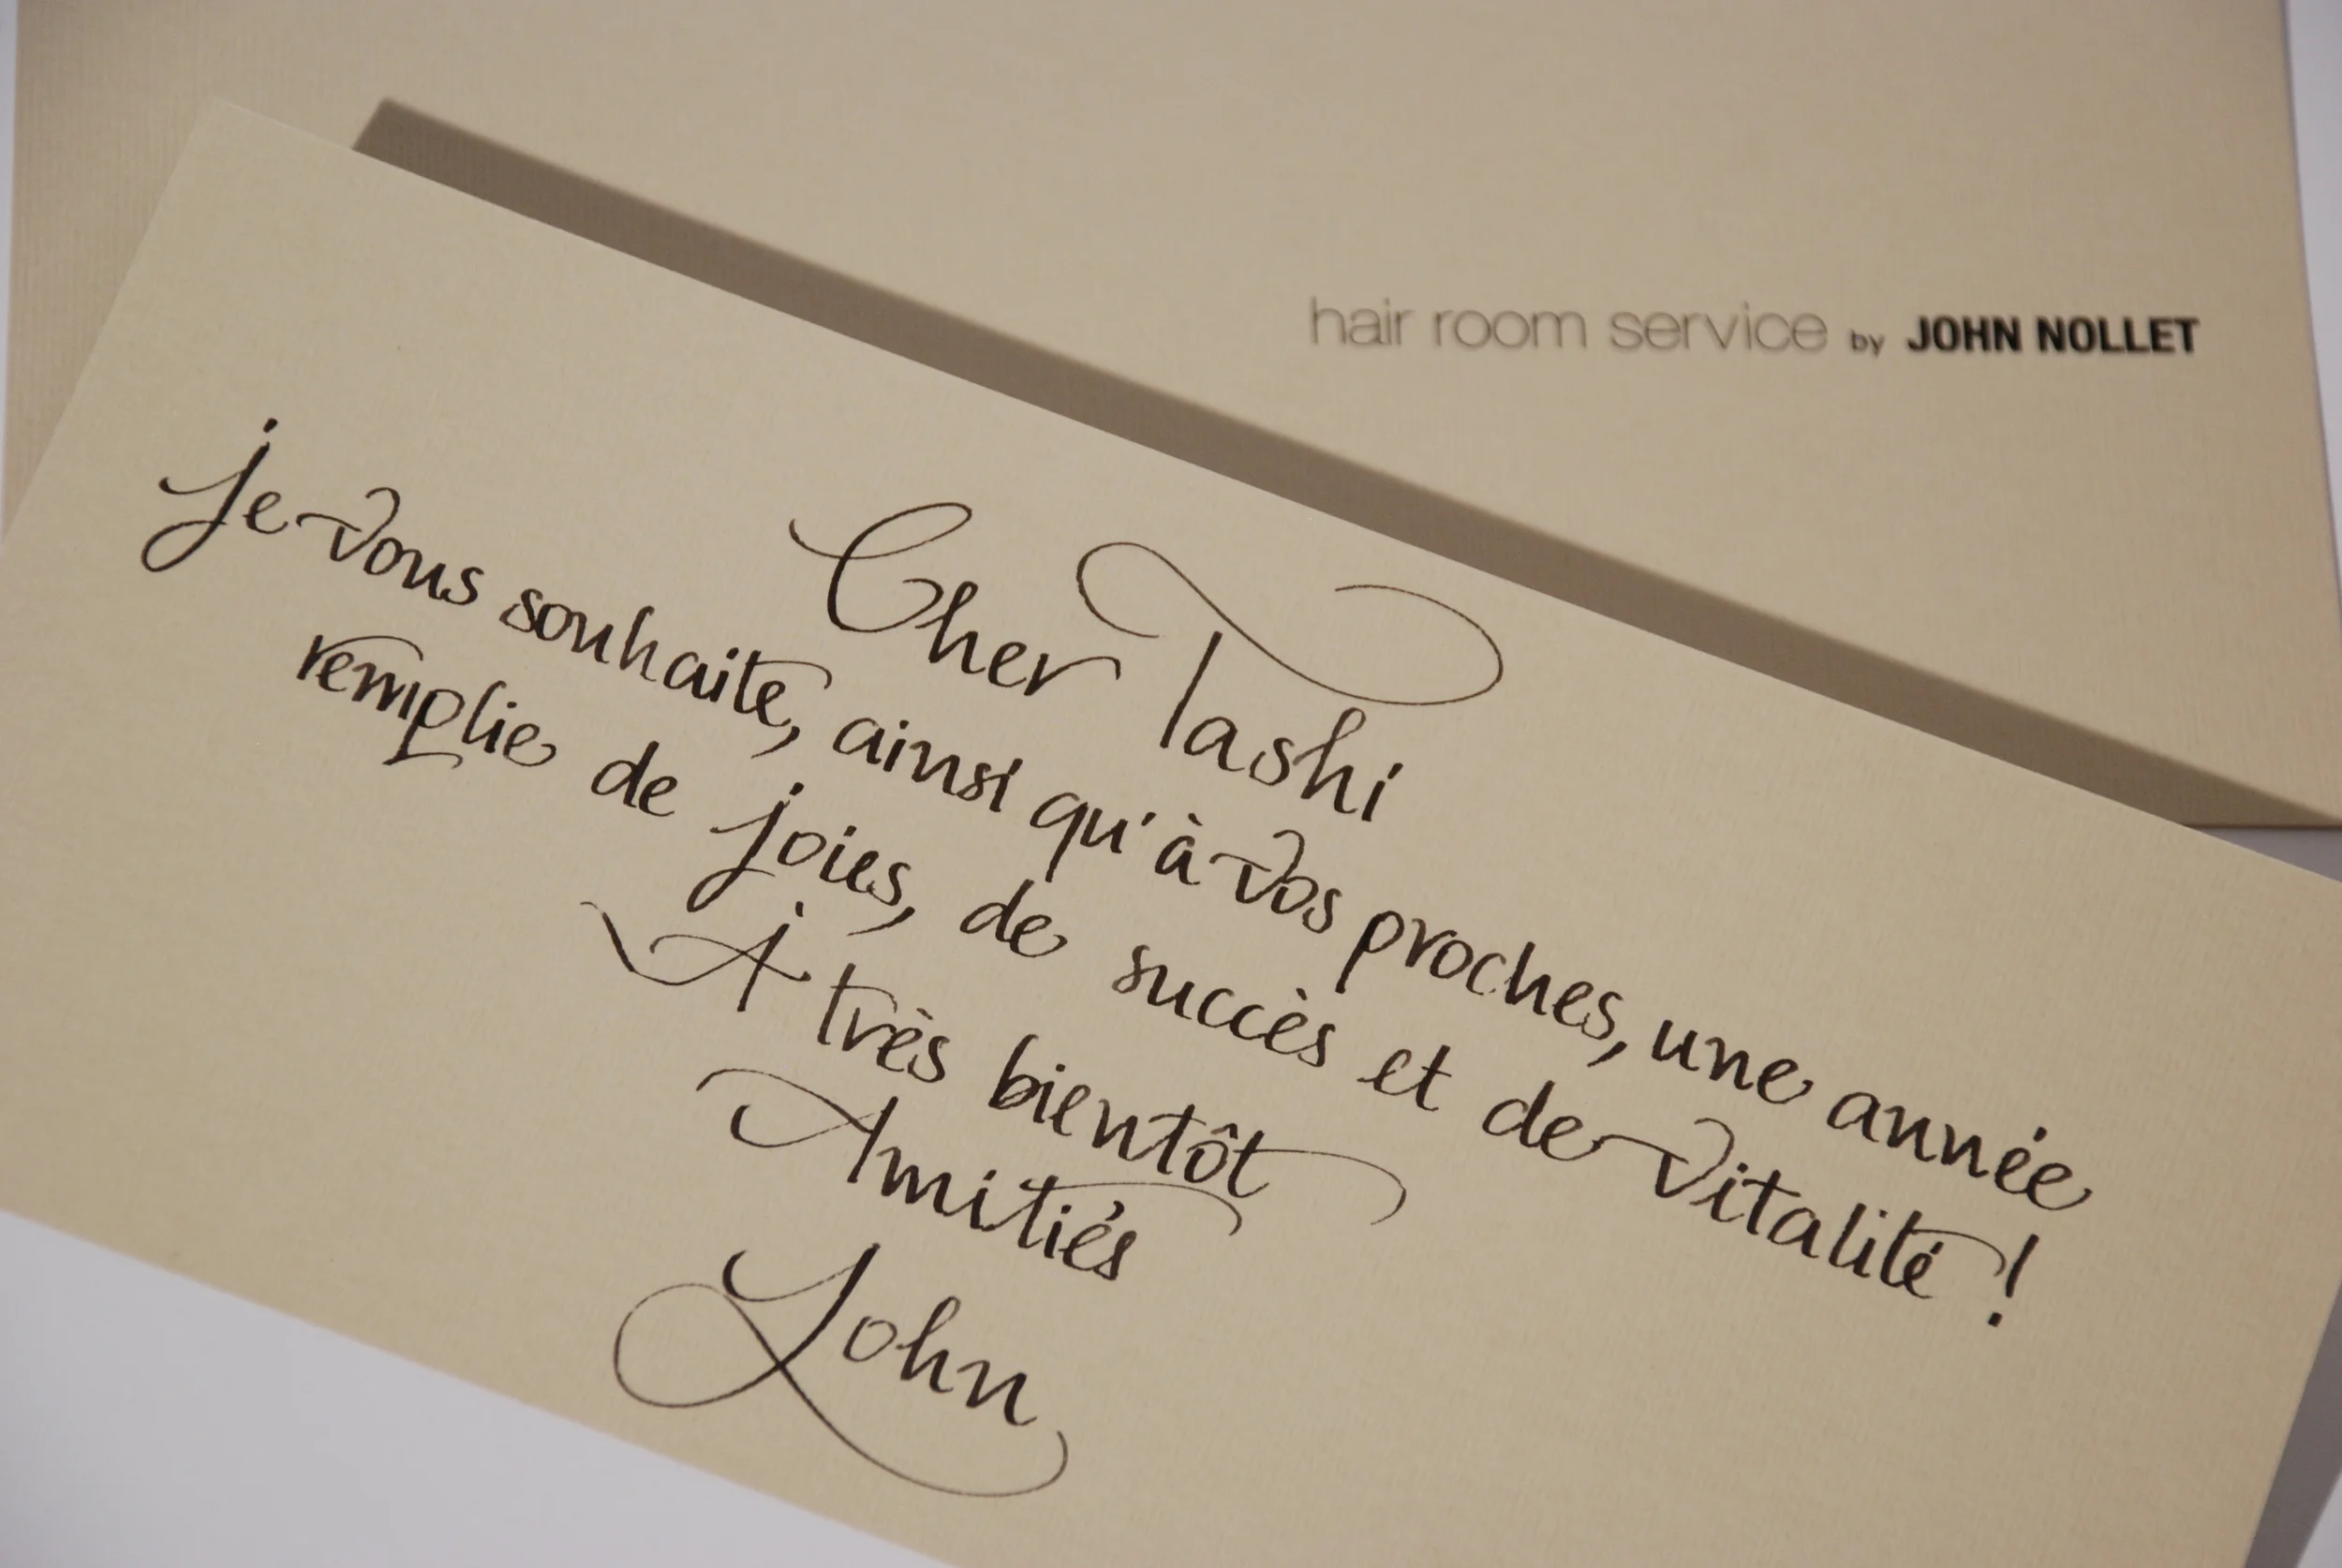 hair room service by JOHN NOLLET
Cher Tashi
je vous souhaite, ainsi qu'à vos proches, une année
remplie de joies, de succès et de vitalité !
À très bientôt
Amitiés
John